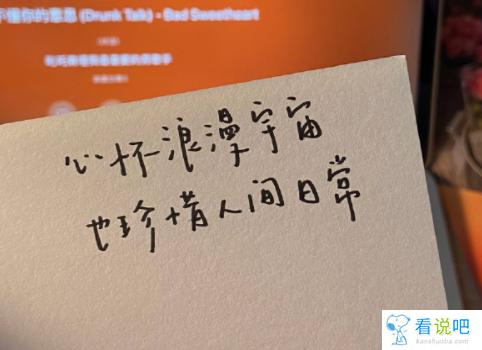 不懂你的意思 (Drunk Talk) - Bad Sweetheart
心怀浪漫宇宙
也珍惜人间日常
看说吧
kanshuoba.com